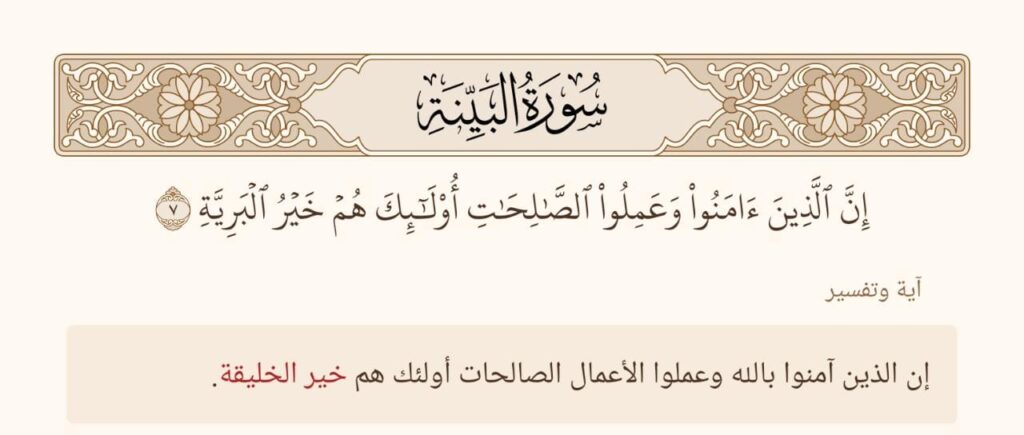 سُورَةُ البَيِّنَةِ
إِنَّ ٱلَّذِينَ ءَامَنُوا۟ وَعَمِلُوا۟ ٱلصَّـٰلِحَـٰتِ أُو۟لَـٰٓئِكَ هُمْ خَيْرُ ٱلْبَرِيَّةِ ٧
آية وتفسير
إن الذين آمنوا بالله وعملوا الأعمال الصالحات أولئك هم خير الخليقة.